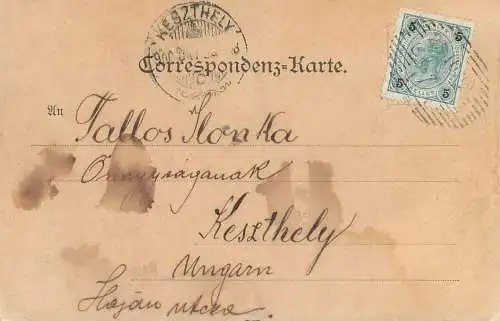 KESZTHELY
5 5
5 5
Correspondenz-Karte.
An
Tallos Ilonka
Őnagyságának
Keszthely
Ungarn
Hoján utcza.